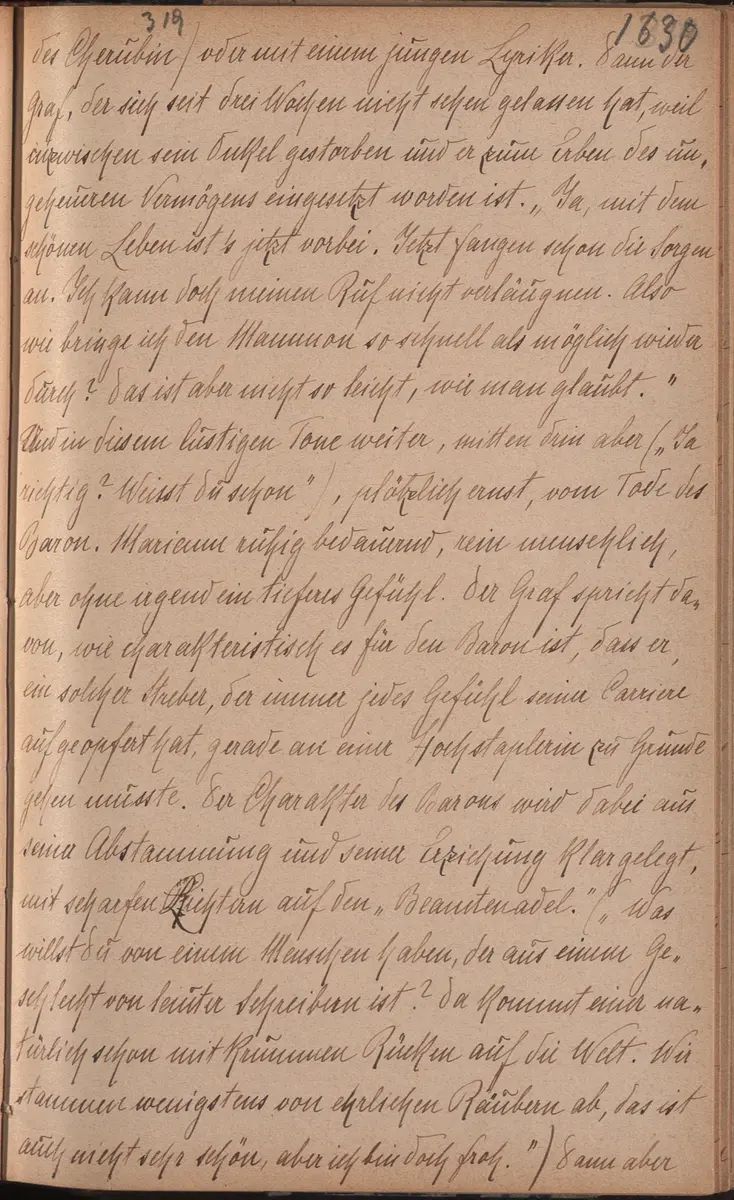 319
1630
des Cherubin) oder mit einem jungen Lyriker. Dann der
Graf, der sich seit drei Wochen nicht sehen gelassen hat, weil
inzwischen sein Onkel gestorben und er zum Erben des un„
geheuren Vermögens eingesetzt worden ist. „Ja, mit dem
schönen Leben ist's jetzt vorbei. Jetzt fangen schon die Sorgen
an. Ich kann doch meinen Ruf nicht verläugnen. Also
wie bringe ich den Mammon so schnell als möglich wieder
durch? Das ist aber nicht so leicht, wie man glaubt."
Und in diesem lustigen Tone weiter, mitten drin aber („Ja
richtig? Weisst du schon"), plötzlich ernst, vom Tode des
Baron. Mariann ruhig bedauernd, rein menschlich,
aber ohne irgend ein tieferes Gefühl. Der Graf spricht da„
von, wie charakteristisch es für den Baron ist, dass er,
ein solcher Streber, der immer jedes Gefühl seiner Carriere
aufgeopfert hat, gerade an einer Hochstaplerin zu Grunde
gehen musste. Der Charakter des Barons wird dabei aus
seiner Abstammung und seiner Erziehung klargelegt,
mit scharfen Lichtern auf den „Beamtenadel." („Was
willst du von einem Menschen haben, der aus einem Ge„
schlecht von lauter Schreibern ist? Da kommt einer na„
türlich schon mit krummen Rücken auf die Welt. Wir
stammen wenigstens von ehrlichen Räubern ab, das ist
auch nicht sehr schön, aber ich bin doch froh.") Dann aber